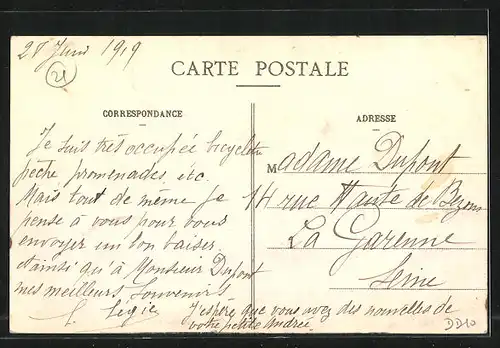 1919
21
CARTE POSTALE
CORRESPONDANCE
ADRESSE
Je suis très occupée bicyclette
pêche promenades etc.
Mais tout de même je
pense à vous pour vous
envoyer un bon baiser.
ainsi qu'à Monsieur Dupont
mes meilleurs souvenirs
J'espère que vous avez des nouvelles de
votre petite Andrée
Madame Dupont
14 rue Haute de Bezons
La Garenne
Seine
DD10